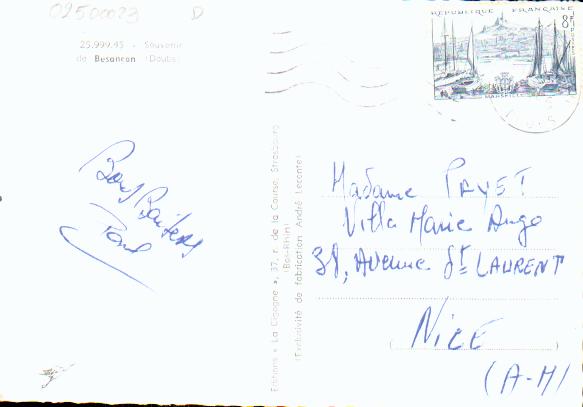 02500023 D
25.999.45 - Souvenir
de Besançon (Doubs)
RÉPUBLIQUE FRANÇAISE
8F
MARSEILLE
Bons Baisers
Editions « La Cigogne », 37, r. de la Course, Strasbourg
(Bas-Rhin)
(Exclusivité de fabrication André Leconte)
Madame PAYET
Villa Marie Ange
38, Avenue St LAURENT
NICE
(A-M)